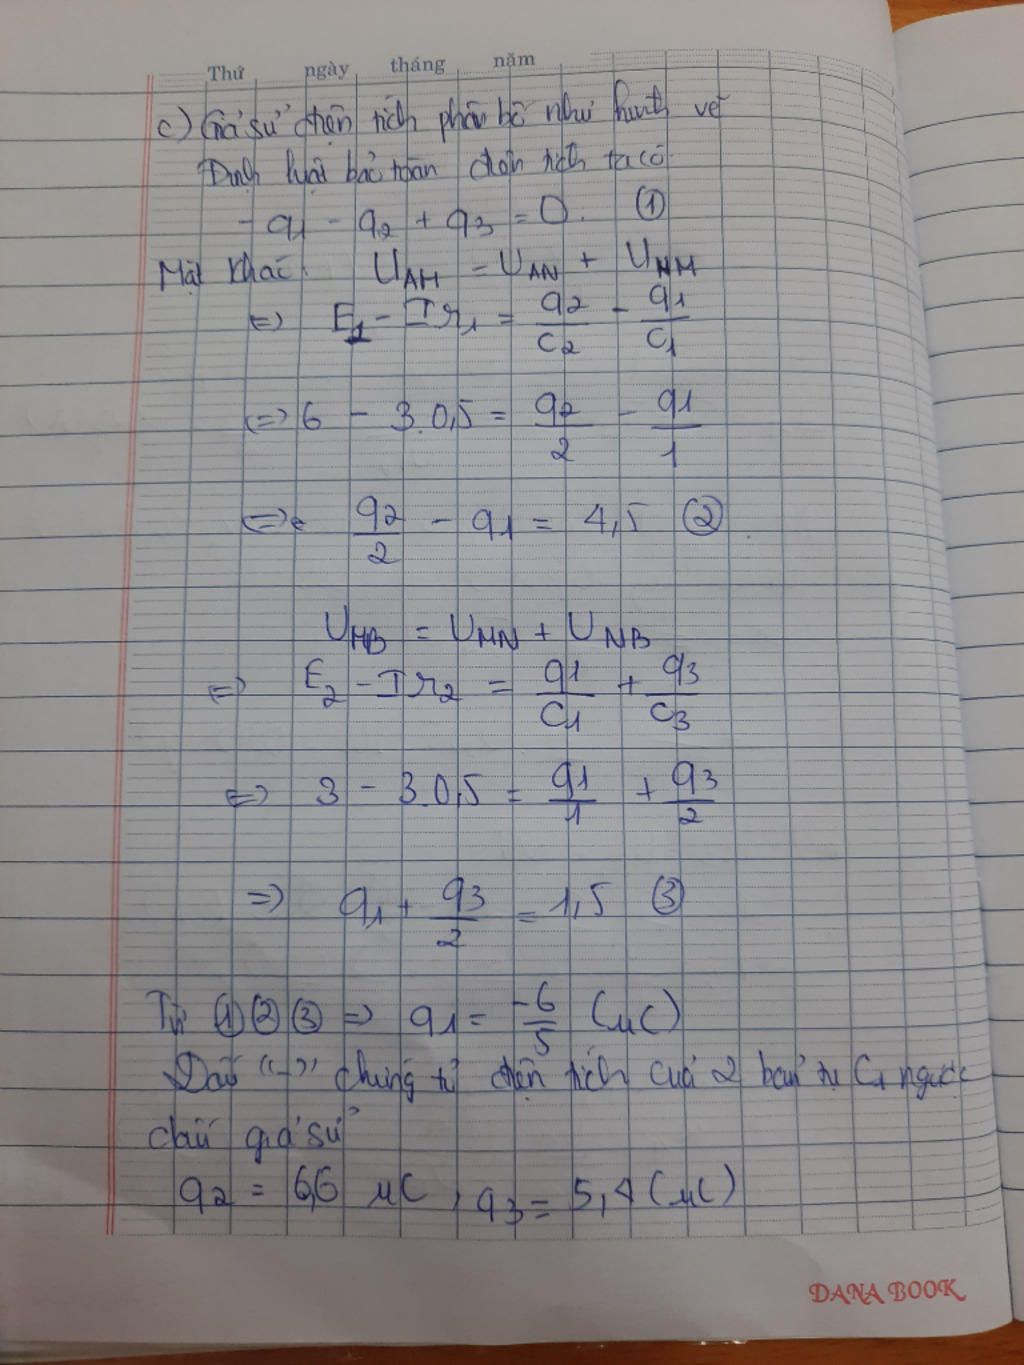 Thứ ngày tháng năm
c) Giả sử điện tích phân bố như hình vẽ
Định luật bảo toàn điện tích ta có
- q1 - q2 + q3 = 0. (1)
Mặt khác. UAM = UAN + UNM
=> E1 - Ir1 = q2/C2 - q1/C1
<=> 6 - 3.0,5 = q2/2 - q1/1
<=> q2/2 - q1 = 4,5 (2)
UMB = UMN + UNB
=> E2 - Ir2 = q1/C1 + q3/C3
<=> 3 - 3.0,5 = q1/1 + q3/2
=> q1 + q3/2 = 1,5 (3)
Từ (1) (2) (3) => q1 = -6/5 (μC)
Dấu "-" chứng tỏ điện tích của 2 bản tụ C1 ngược
dấu giả sử
q2 = 6,6 μC, q3 = 5,4 (μC)
DANA BOOK